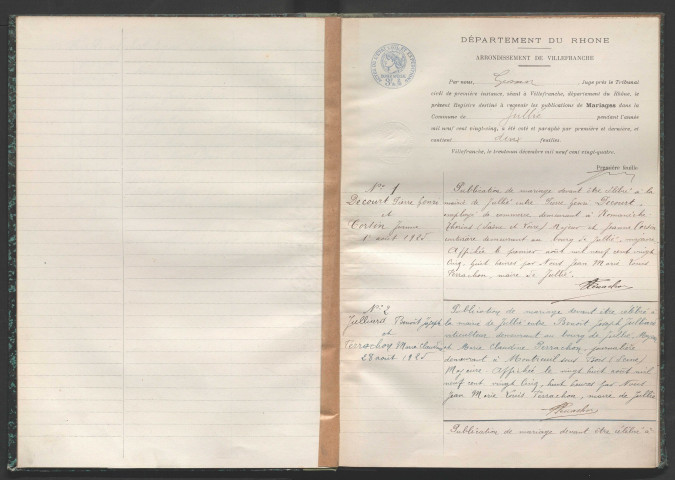 DÉPARTEMENT DU RHONE
ARRONDISSEMENT DE VILLEFRANCHE
Par nous, Juge près le Tribunal
civil de première instance, séant à Villefranche, département du Rhône, le
présent Registre destiné à recevoir les publications de Mariages dans la
Commune de Jullié pendant l'année
mil neuf cent vingt-cinq, a été coté et paraphé par première et dernière, et
contient deux feuilles.
Villefranche, le trente-un décembre mil neuf cent vingt-quatre.
Première feuille
No 1
Decourt Pierre
et
Corsin Jeanne
1er août 1925
Publication de mariage devant être célébré à la
mairie de Jullié entre Pierre Decourt
employé de commerce demeurant à Romanèche
Thorins (Saône et Loire) Majeur et Jeanne Corsin
demeurant au bourg de Jullié, majeure
Affichée le premier août mil neuf cent vingt
cinq, huit heures par Nous Jean Marie Louis
Perrachon, maire de Jullié.
Perrachon
No 2
Julliard Benoit Joseph
et
Perrachon Marie Claudine
28 août 1925
Publication de mariage devant être célébré à
la mairie de Jullié entre Benoit Joseph Julliard
demeurant au bourg de Jullié, Majeur
et Marie Claudine Perrachon,
demeurant à Montreuil sous Bois (Seine)
Majeure Affichée le vingt huit août mil
neuf cent vingt cinq, huit heures par Nous
Jean Marie Louis Perrachon, maire de Jullié
Perrachon
Publication de mariage devant être célébré à